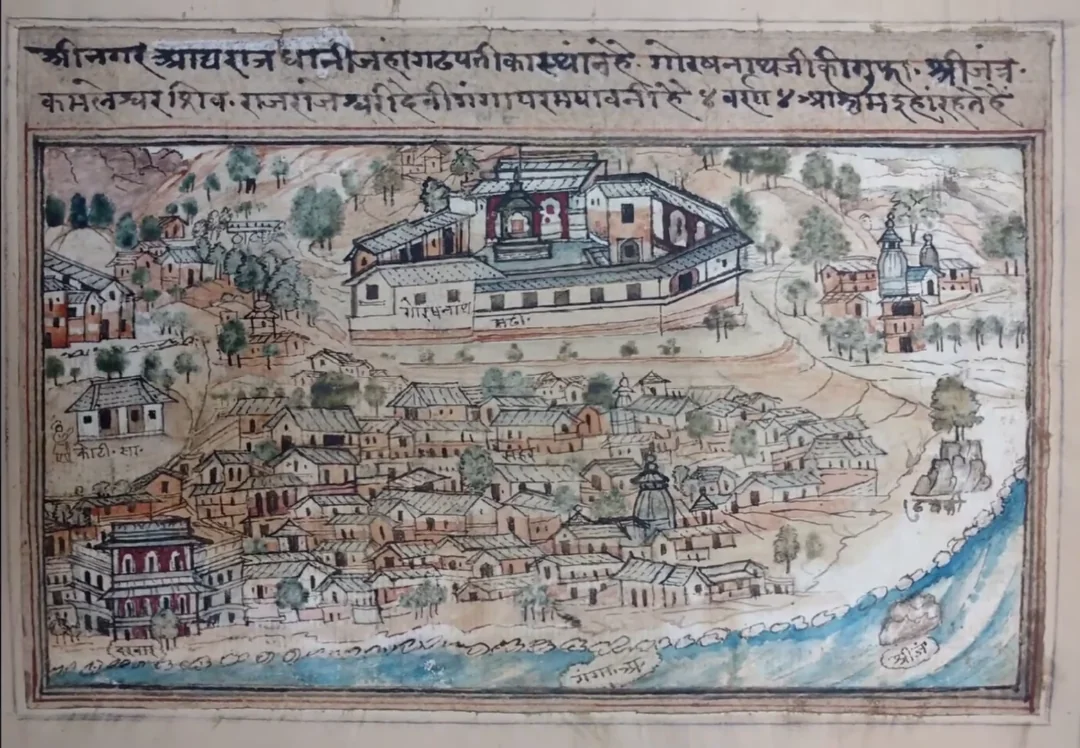 श्रीनगर आद्य राज धानी जहां गढपती का स्थांन है॰ गोरषनाथ जी की गुफा॰ श्री जंत्र॰
कमलेश्वर शिव॰ राजराजेश्वरी देवी गंगा परम पावनी है ४ वर्ण ४ आश्रम इहां रहते हैं
गोरषनाथ
मढी॰
कोटी॰ सा॰